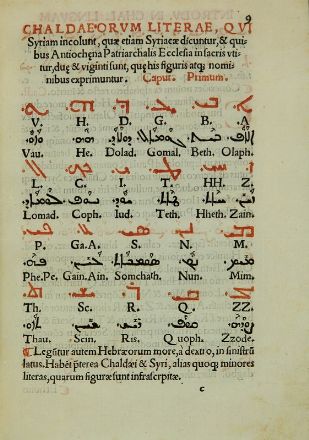 9
CHALDAEORVM LITERAE, QVI
Syriam incolunt, quæ etiam Syriacæ dicuntur, & qui
bus Antiochena Patriarchalis Ecclesia in sacris vti
tur, duę & viginti sunt, quę his figuris atq; nomi
nibus exprimuntur. Caput. Primum.
ܐ ܒ ܓ ܕ ܗ ܘ
V. H. D. G. B. A.
Vau. He. Dolad. Gomal. Beth. Olaph.
ܙ ܚ ܛ ܝ ܟ ܠ
L. C. I. T. HH. Z.
Lomad. Coph. Iud. Teth. Hheth. Zain.
ܡ ܢ ܣ ܥ ܦ
P. Ga.A. S. N. M.
Phe.Pe. Gain.Ain. Somchath. Nun. Mim.
ܨ ܩ ܪ ܫ ܬ
Th. Sc. R. Q. ZZ.
Thau. Scin. Ris. Quoph. Zzode.
Legūtur autem Hebræorum more, a dextro, in sinistrū
latus. Habēt pterea Chaldæi & Syri, alias quoq; minores
literas, quarum figuræ sunt infrascriptæ.
c